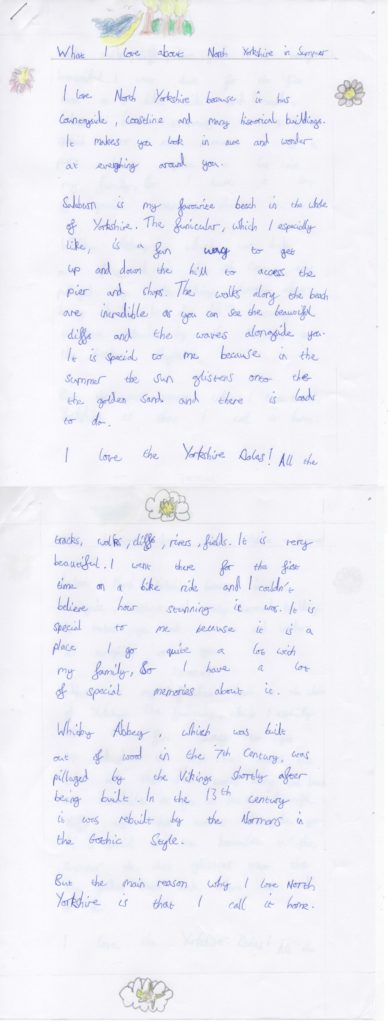 What I Love about North Yorkshire in Summer
I love North Yorkshire because it has
countryside, coastline and many historical buildings.
It makes you look in awe and wonder
at everything around you.
Saltburn is my favourite beach in the whole
of Yorkshire. The funicular, which I especially
like, is a fun way to get
up and down the hill to access the
pier and shops. The walks along the beach
are incredible as you can see the beautiful
cliffs and the waves alongside you.
It is special to me because in the
summer the sun glistens onto the
the golden sand and there is loads
to do.
I love the Yorkshire Dales! All the
tracks, walks, cliffs, rivers, fields. It is very
beautiful. I went there for the first
time on a bike ride and I couldn't
believe how stunning it was. It is
special to me because it is a
place I go quite a lot with
my family, so I have a lot
of special memories about it.
Whitby Abbey, which was built
out of wood in the 7th Century, was
pillaged by the Vikings shortly after
being built. In the 13th century
it was rebuilt by the Normans in
the Gothic Style.
But the main reason why I love North
Yorkshire is that I call it home.